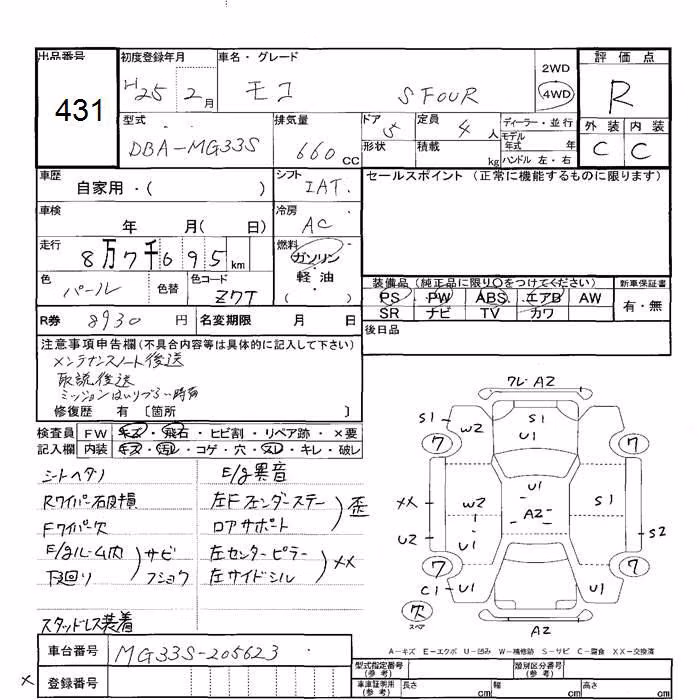 出品番号
431
初度登録年月
H25 2月
車名・グレード
モコ S FOUR
2WD
4WD
評価点
R
外装 内装
C C
型式
DBA-MG33S
排気量
660 CC
ドア 5
形状
定員 4人
積載 kg
ディーラー・並行
モデル年式 年
ハンドル 左・右
車歴
自家用・( )
シフト
IAT
セールスポイント (正常に機能するものに限ります)
車検
年 月( 日)
冷房
AC
走行
8万7千695 km
燃料
ガソリン
軽油
( )
色
パール
色替
色コード
Z7T
装備品 (純正品に限り○をつけてください)
PS PW ABS エアB AW
SR ナビ TV カワ
新車保証書
有・無
R券 8930 円
名変期限 月 日
後日品
注意事項申告欄(不具合内容等は具体的に記入して下さい)
メンテナンスノート後送
取説後送
ミッションはいりづらい時有
修復歴 有 〔箇所 〕
検査員 FW キズ・飛石・ヒビ割・リペア跡・×要
記入欄 内装 キズ・汚レ・コゲ・穴・スレ・キレ・破レ
シートヘタリ
Rワイパー右破損
Fワイパー欠
E/gルーム内
下廻り
サビ
フショク
スタッドレス装着
E/g異音
左Fフェンダーステー
ロアサポート
歪
左センターピラー
左サイドシル
XX
ワレ・A2
S1
W2
S1
U1
7
7
XX
U2
W2
U1
U1
A2
S1
S2
7
7
C1
U1
U1
欠
スペア
A2
A-キズ E-エクボ U-凹み W-補修跡 S-サビ C-腐食 XX-交換済
車台番号 MG33S-205623
× 登録番号
型式指定番号
(参考)
類別区分番号
(参考)
車庫証明用
(参考)
長さ cm
幅 cm
高さ cm